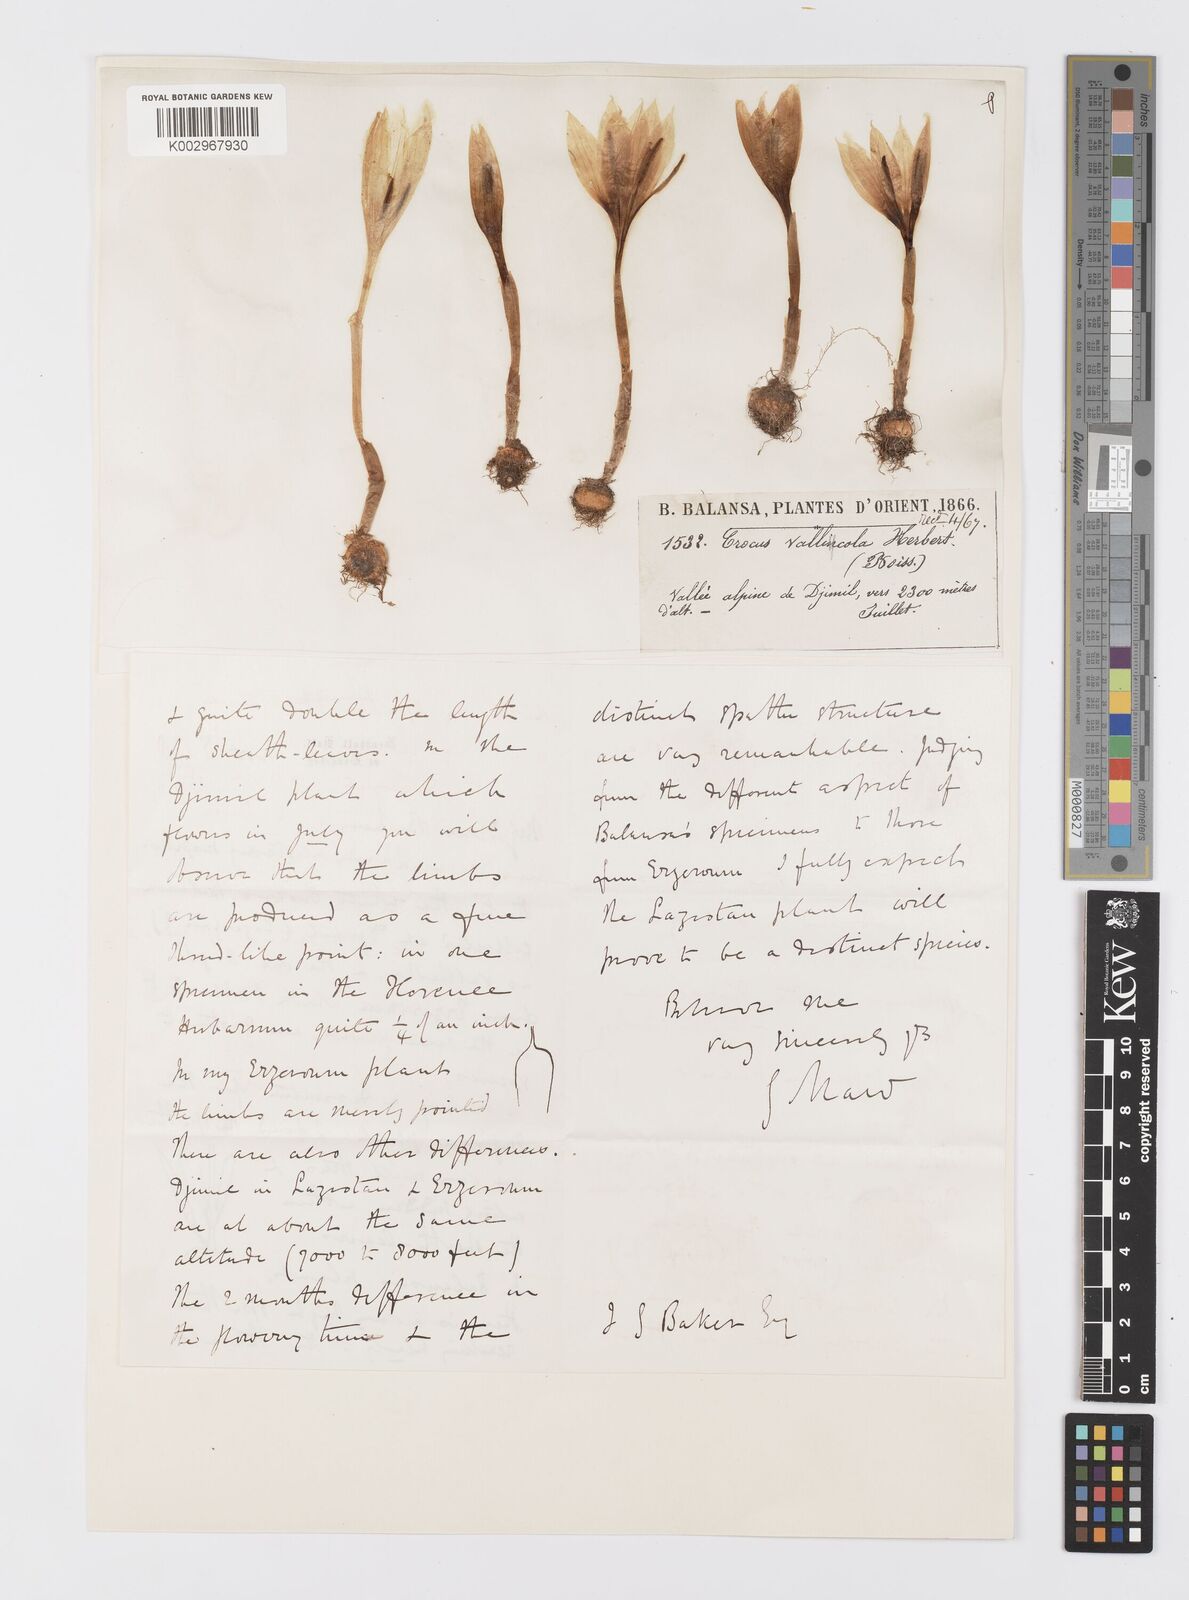 ROYAL BOTANIC GARDENS KEW
K002967930
B. BALANSA, PLANTES D'ORIENT, 1866.
recd. 4/67.
1532. Crocus vallicola Herbert.
(Boiss.)
Vallée alpine de Djimil, vers 2300 mètres
d'alt. — Juillet.
& quite double the length
of sheath-leaves. In the
Djimil plant which
flowers in July you will
observe that the limbs
are produced as a fine
thread-like point: in one
specimen in the Florence
Herbarium quite ¼ of an inch.
In my Erzeroum plant
the limbs are merely pointed
There are also other differences.
Djimil in Lazistan & Erzeroum
are at about the same
altitude (7000 to 8000 feet)
The 2 months difference in
the flowering time & the
distinct spathe structure
are very remarkable. Judging
from the different aspect of
Balansa's specimens to those
from Erzeroum I fully expect
the Lazistan plant will
prove to be a distinct species.
Believe me
very sincerely yrs
G Maw
J G Baker Esq
inches
centimetres
Density
Don Williams
M000827
Royal Botanic Gardens
Kew
copyright reserved
0 1 2 3 4 5 6 7 8 9 10
cm